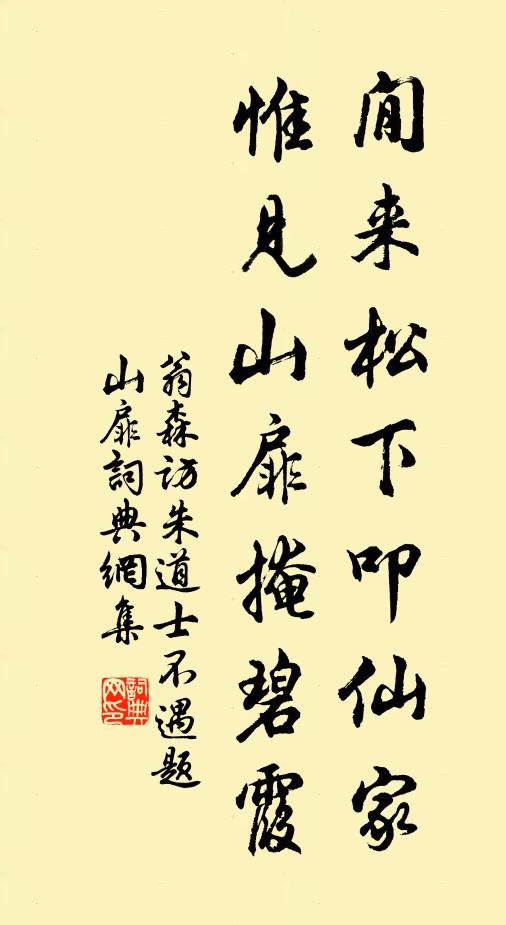 閒来松下叩仙家
惟見山扉掩碧霞
翁森訪朱道士不遇題
山扉詞典網集
詞典
网印